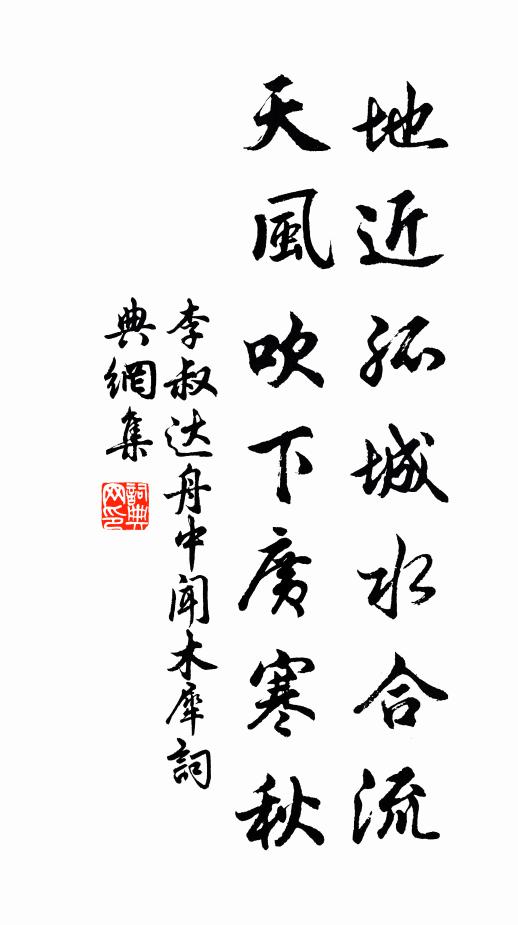 地近孤城水合流
天風吹下廣寒秋
李叔达舟中闻木犀詞
典網集
詞典网印